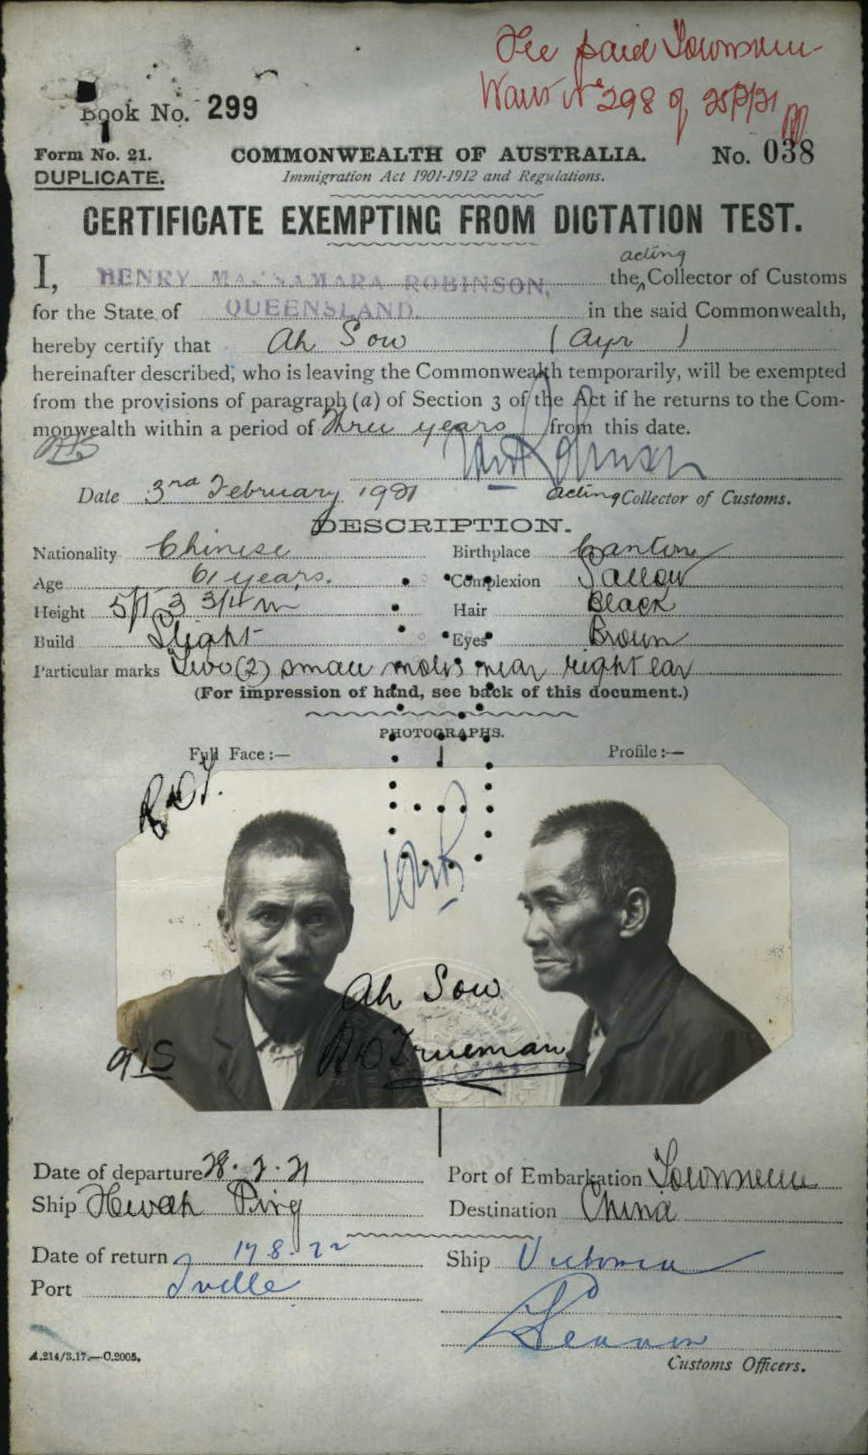 Fee paid Townsville
Warr Nº 298 of 25/2/21
Book No. 299
Form No. 21.
COMMONWEALTH OF AUSTRALIA.
No. 038
DUPLICATE.
Immigration Act 1901-1912 and Regulations.
CERTIFICATE EXEMPTING FROM DICTATION TEST.
acting
I, HENRY MACNAMARA ROBINSON, the Collector of Customs
for the State of QUEENSLAND. in the said Commonwealth,
hereby certify that Ah Sow (Ayr)
hereinafter described, who is leaving the Commonwealth temporarily, will be exempted
from the provisions of paragraph (a) of Section 3 of the Act if he returns to the Com-
monwealth within a period of three years from this date.
Date 3rd February 1921
acting Collector of Customs.
DESCRIPTION.
Nationality Chinese Birthplace Canton
Age 61 years. Complexion Sallow
Height 5ft 3 3/4 in Hair Black
Build Slight Eyes Brown
Particular marks Two (2) small moles near right ear
(For impression of hand, see back of this document.)
PHOTOGRAPHS.
Full Face:— Profile:—
Ah Sow
Trueman
Date of departure 28.2.21 Port of Embarkation Townsville
Ship Hwah Ping Destination China
Date of return 17.8.22 Ship Victoria
Port Tville
A.214/3.17.—C.2005.
Customs Officers.